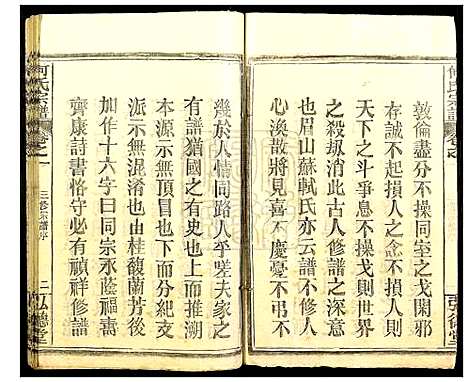 何氏宗譜
敦倫盡分不操同室之戈閑邪
存誠不起損人之念不損人則
天下之斗爭息不操戈則世界
之殺劫消此古人修譜之深意
也眉山蘇軾氏亦云譜不修不
心渙故將見喜不慶憂不弔不
幾於人情同路人乎嗟夫家之
有譜猶國之有史也上而推溯
本源示無頂冒也下而分紀支
派示無混淆也由桂馥蘭芳後
加作十六字曰同宗永蔭福壽
齊康詩書恪守必有禎祥修譜
何氏宗譜
卷之一
三修宗譜序
二
弘德堂